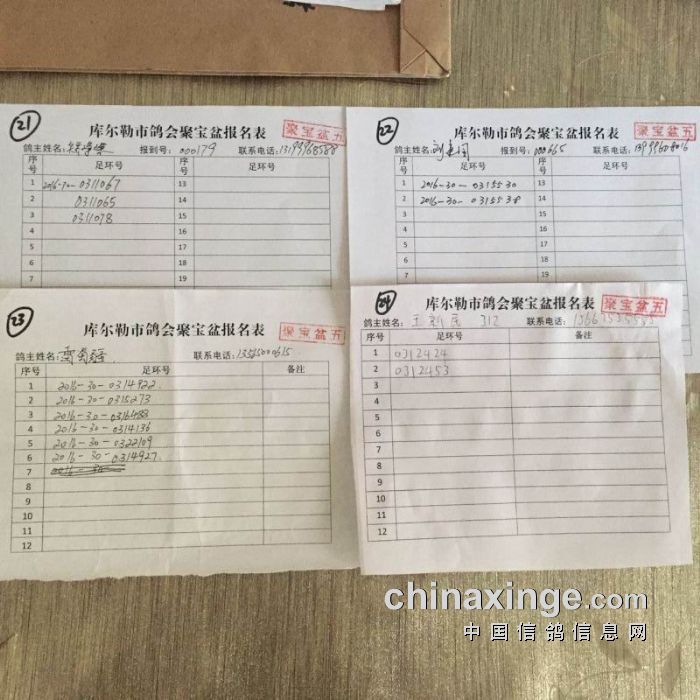 21
库尔勒市鸽会聚宝盆报名表
聚宝盆五
鸽主姓名: 报到号: 000179 联系电话:
序号 足环号 序号 足环号
1 2016-30-0311067 13
2 0311065 14
3 0311078 15
4 16
5 17
6 18
7 19
22
库尔勒市鸽会聚宝盆报名表
聚宝盆五
鸽主姓名: 报到号: 000665 联系电话:
序号 足环号 序号 足环号
1 2016-30-0315530 13
2 2016-30-0315538 14
3 15
4 16
5 17
6 18
7 19
23
库尔勒市鸽会聚宝盆报名表
聚宝盆五
鸽主姓名: 联系电话:
序号 足环号 备注
1 2016-30-0314922
2 2016-30-0315273
3 2016-30-0316488
4 2016-30-0314136
5 2016-30-0322109
6 2016-30-0314927
7 2016-30-
8
9
10
11
12
24
库尔勒市鸽会聚宝盆报名表
聚宝盆五
鸽主姓名: 312 联系电话:
序号 足环号 备注
1 0312424
2 0312453
3
4
5
6
7
8
9
10
11
12
chinaxinge.com
中国信鸽信息网